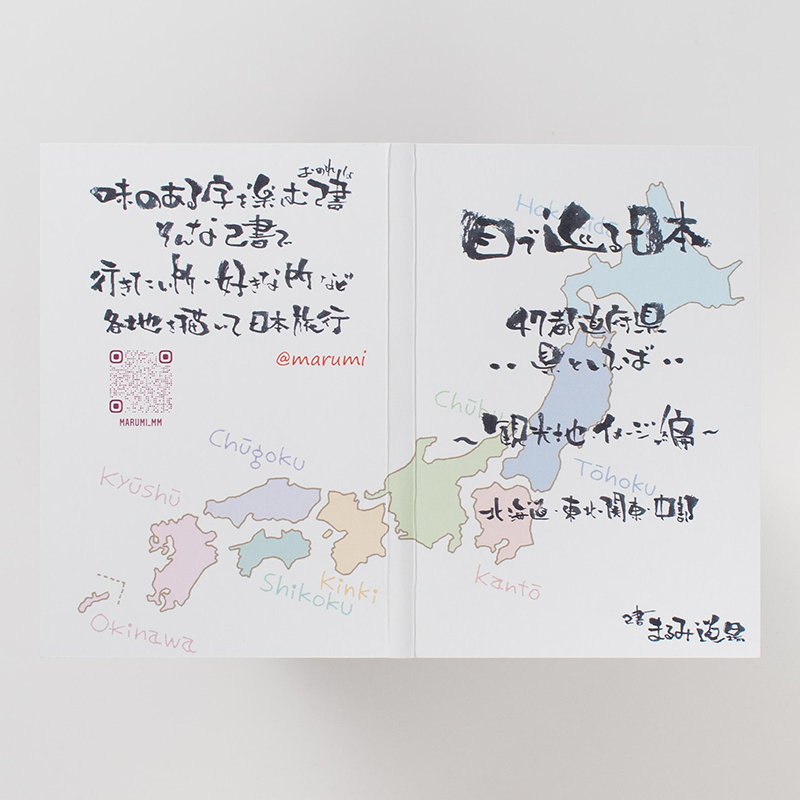 おのれしょ
味のある字を楽しむ己書
そんな己書で
行きたい所・好きな所など
各地を描いて日本旅行
@marumi
MARUMI.MM
Chūgoku
Kyūshū
Shikoku
Kinki
Okinawa
目で巡る日本
47都道府県
・・県といえば・・
～観光地・イメージ編～
北海道・東北・関東・中部
己書 まるみ道場
Hokkaidō
Chūbu
Tōhoku
Kantō